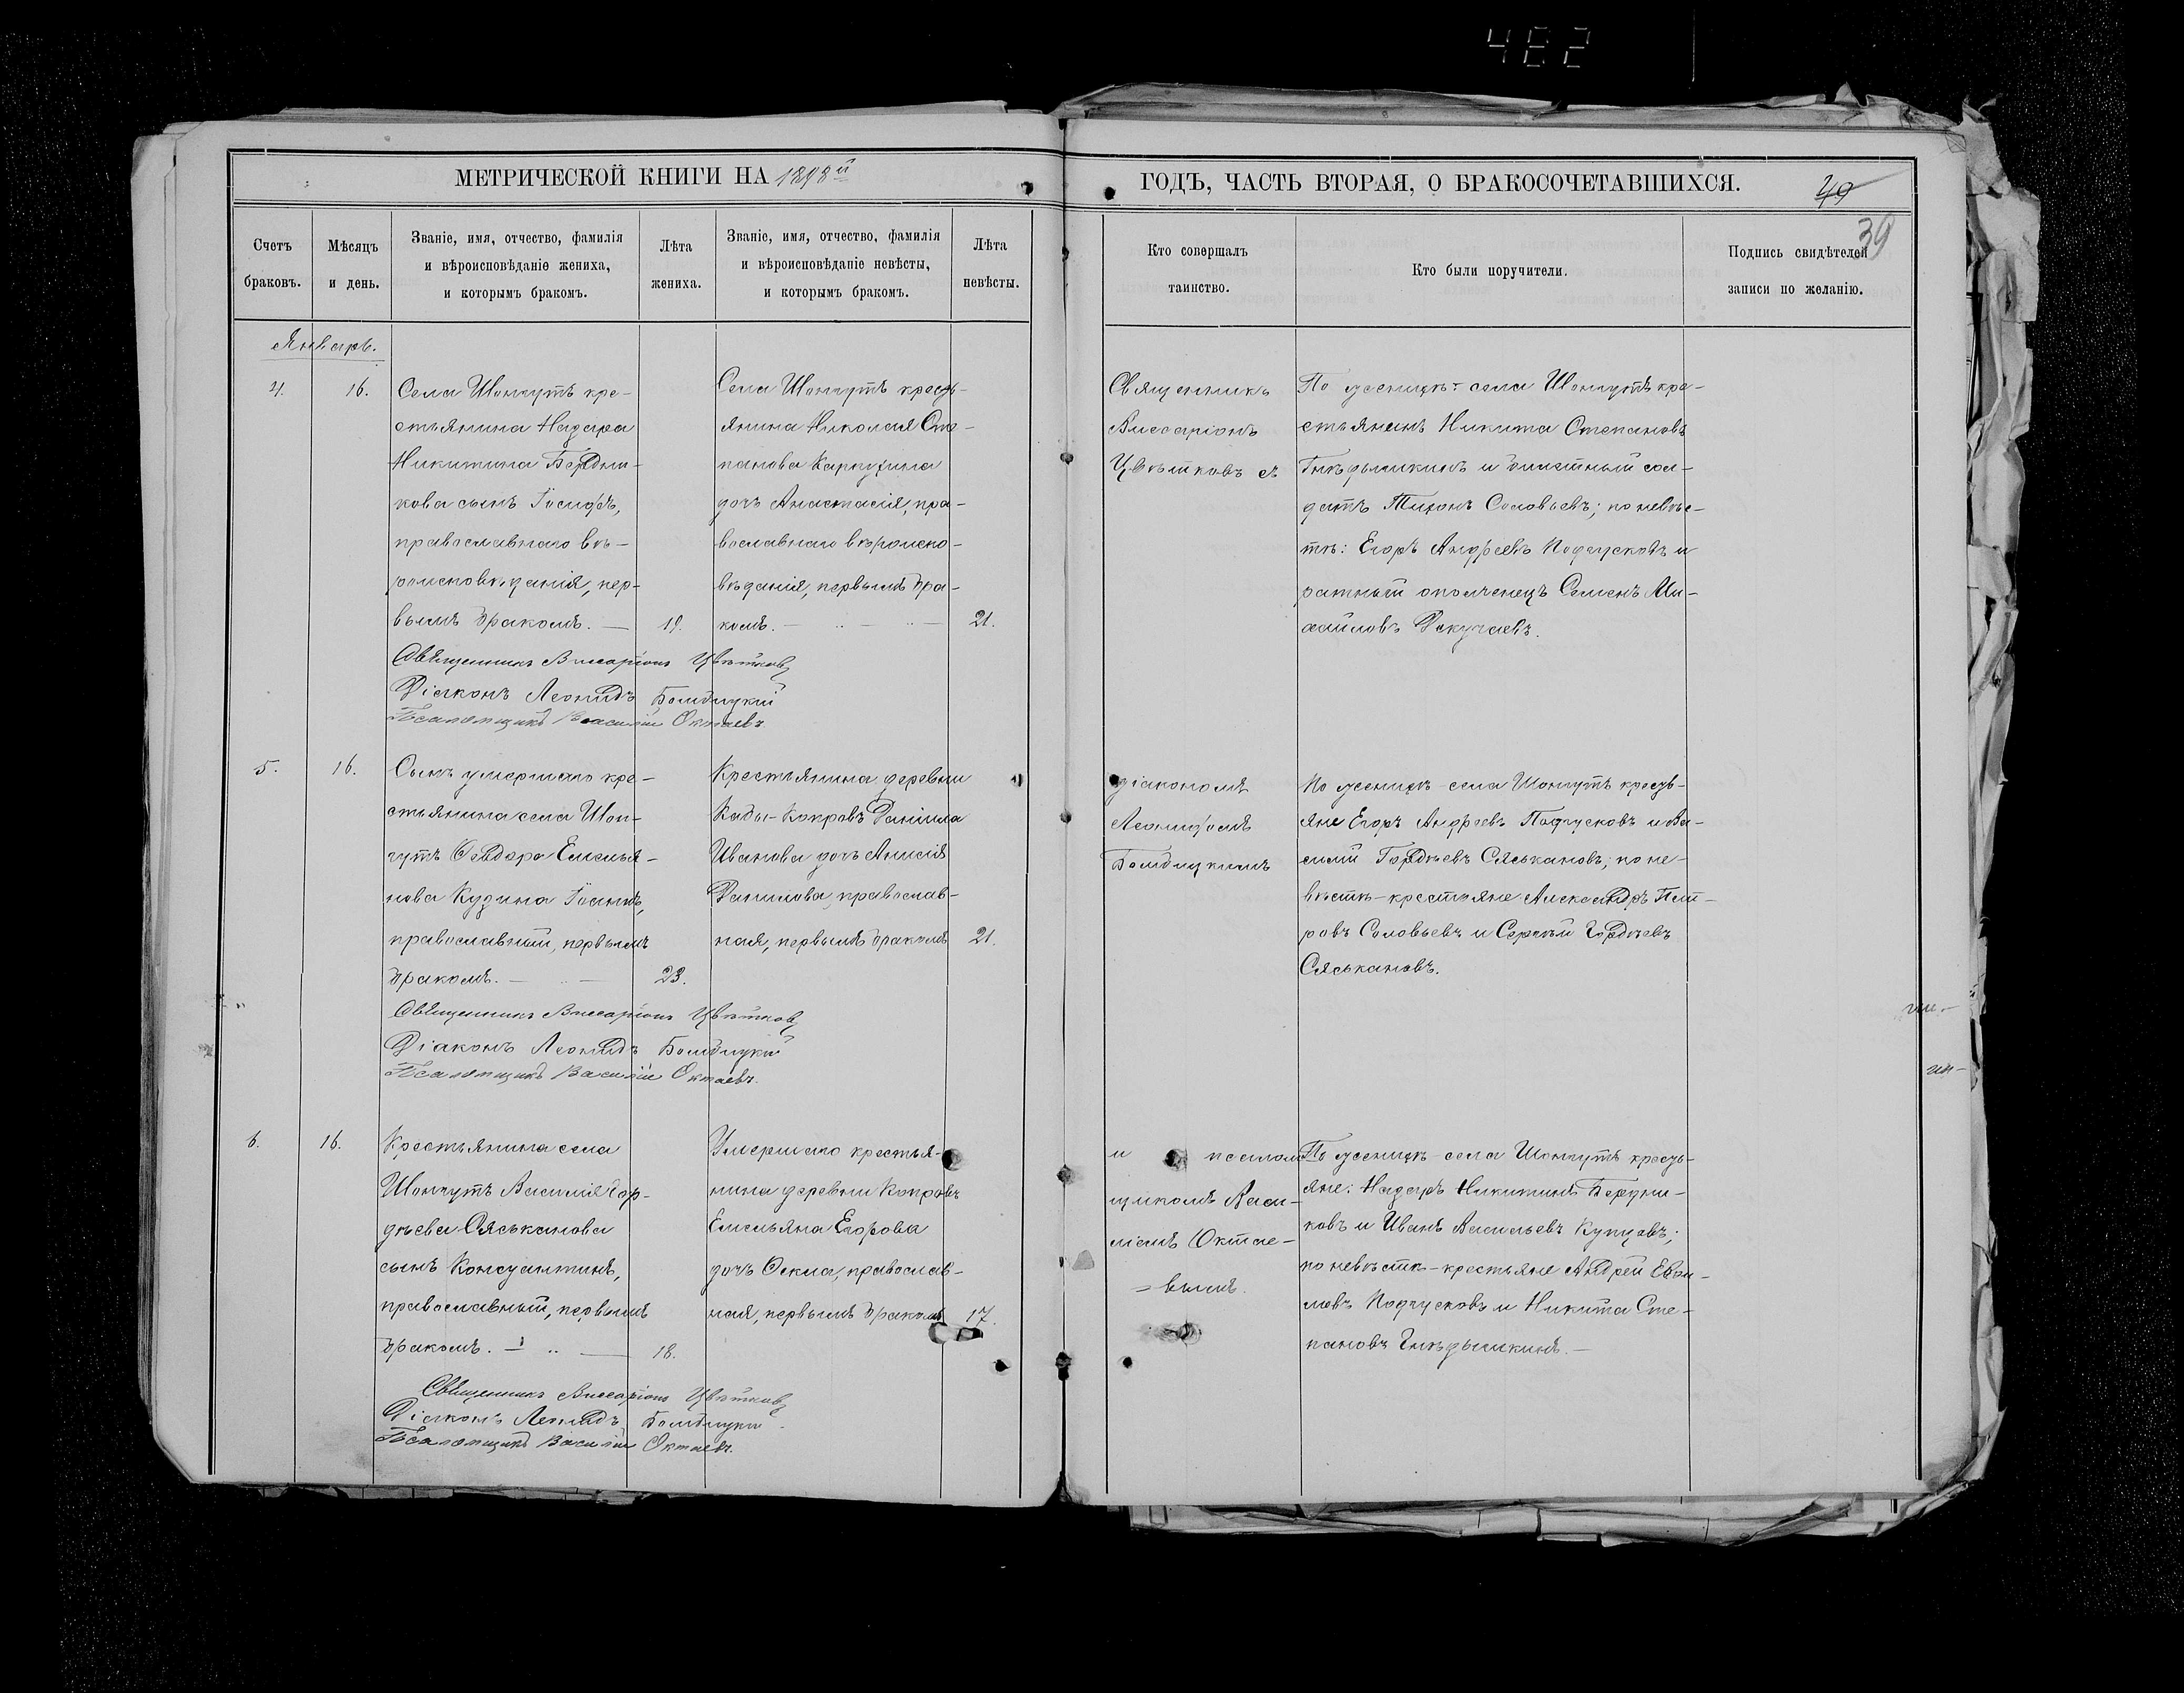 482
МЕТРИЧЕСКОЙ КНИГИ НА 1898й
ГОДЪ, ЧАСТЬ ВТОРАЯ, О БРАКОСОЧЕТАВШИХСЯ.
39
Счетъ браковъ.
Мѣсяцъ и день.
Званіе, имя, отчество, фамилія
и вѣроисповѣданіе жениха,
и которымъ бракомъ.
Лѣта жениха.
Званіе, имя, отчество, фамилія
и вѣроисповѣданіе невѣсты,
и которымъ бракомъ.
Лѣта невѣсты.
Кто совершалъ таинство.
Кто были поручители.
Подпись свидѣтелей
записи по желанію.
Январь.
4.
16.
Села Шонгутъ кре-
стьянина Назара
Никитина Бердни-
кова сынъ Іосифъ,
православнаго вѣ-
роисповѣданія, пер-
вымъ бракомъ. —
19.
Села Шонгутъ кресть-
янина Николая Сте-
панова Карпухина
дочь Анастасія, пра-
вославнаго вѣроиспо-
вѣданія, первымъ бра-
комъ.
21.
Священникъ
Виссаріонъ
Цвѣтковъ съ
По женихѣ - села Шонгутъ кре-
стьянинъ Никита Степановъ
Гнѣдышкинъ и билетный сол-
датъ Тихонъ Соловьевъ; по невѣс-
тѣ: Егоръ Андреевъ Подгусковъ и
ратный ополченецъ Семенъ Ми-
хайловъ Докучаевъ.
Священникъ Виссаріонъ Цвѣтковъ
Діаконъ Леонидъ
Псаломщикъ Василій Октаевъ.
5.
16.
Сынъ умершаго кре-
стьянина села Шон-
гутъ Ѳеодора Емелья-
нова Кузина Іоаннъ,
православный, первымъ
бракомъ. —
23.
Крестьянина деревни
Кады-Кокровъ Даніила
Иванова дочь Анисія
Данилова, православ-
ная, первымъ бракомъ
21.
діакономъ
Леонидомъ
По женихѣ - села Шонгутъ кресть-
яне Егоръ Андреевъ Подгусковъ и Ва-
силій Гордѣевъ Сяськановъ; по не-
вѣстѣ - крестьяне Александръ Пет-
ровъ Соловьевъ и Сергѣй Гордѣевъ
Сяськановъ.
Священникъ Виссаріонъ Цвѣтковъ
Діаконъ Леонидъ
Псаломщикъ Василій Октаевъ.
6.
16.
Крестьянина села
Шонгутъ Василія Гор-
дѣева Сяськанова
сынъ Константинъ,
православный, первымъ
бракомъ. —
18.
Умершаго крестья-
нина деревни Кокровъ
Емельяна Егорова
дочь Ѳекла, православ-
ная, первымъ бракомъ
17.
и псалом-
щикомъ Васи-
ліемъ Октае-
=вымъ.
По женихѣ - села Шонгутъ кресть-
яне: Назаръ Никитинъ Бердни-
ковъ и Иванъ Васильевъ Купцовъ;
по невѣстѣ - крестьяне Андрей
Подгусковъ и Никита Сте-
пановъ Гнѣдышкинъ. —
Священникъ Виссаріонъ Цвѣтковъ
Діаконъ Леонидъ
Псаломщикъ Василій Октаевъ.